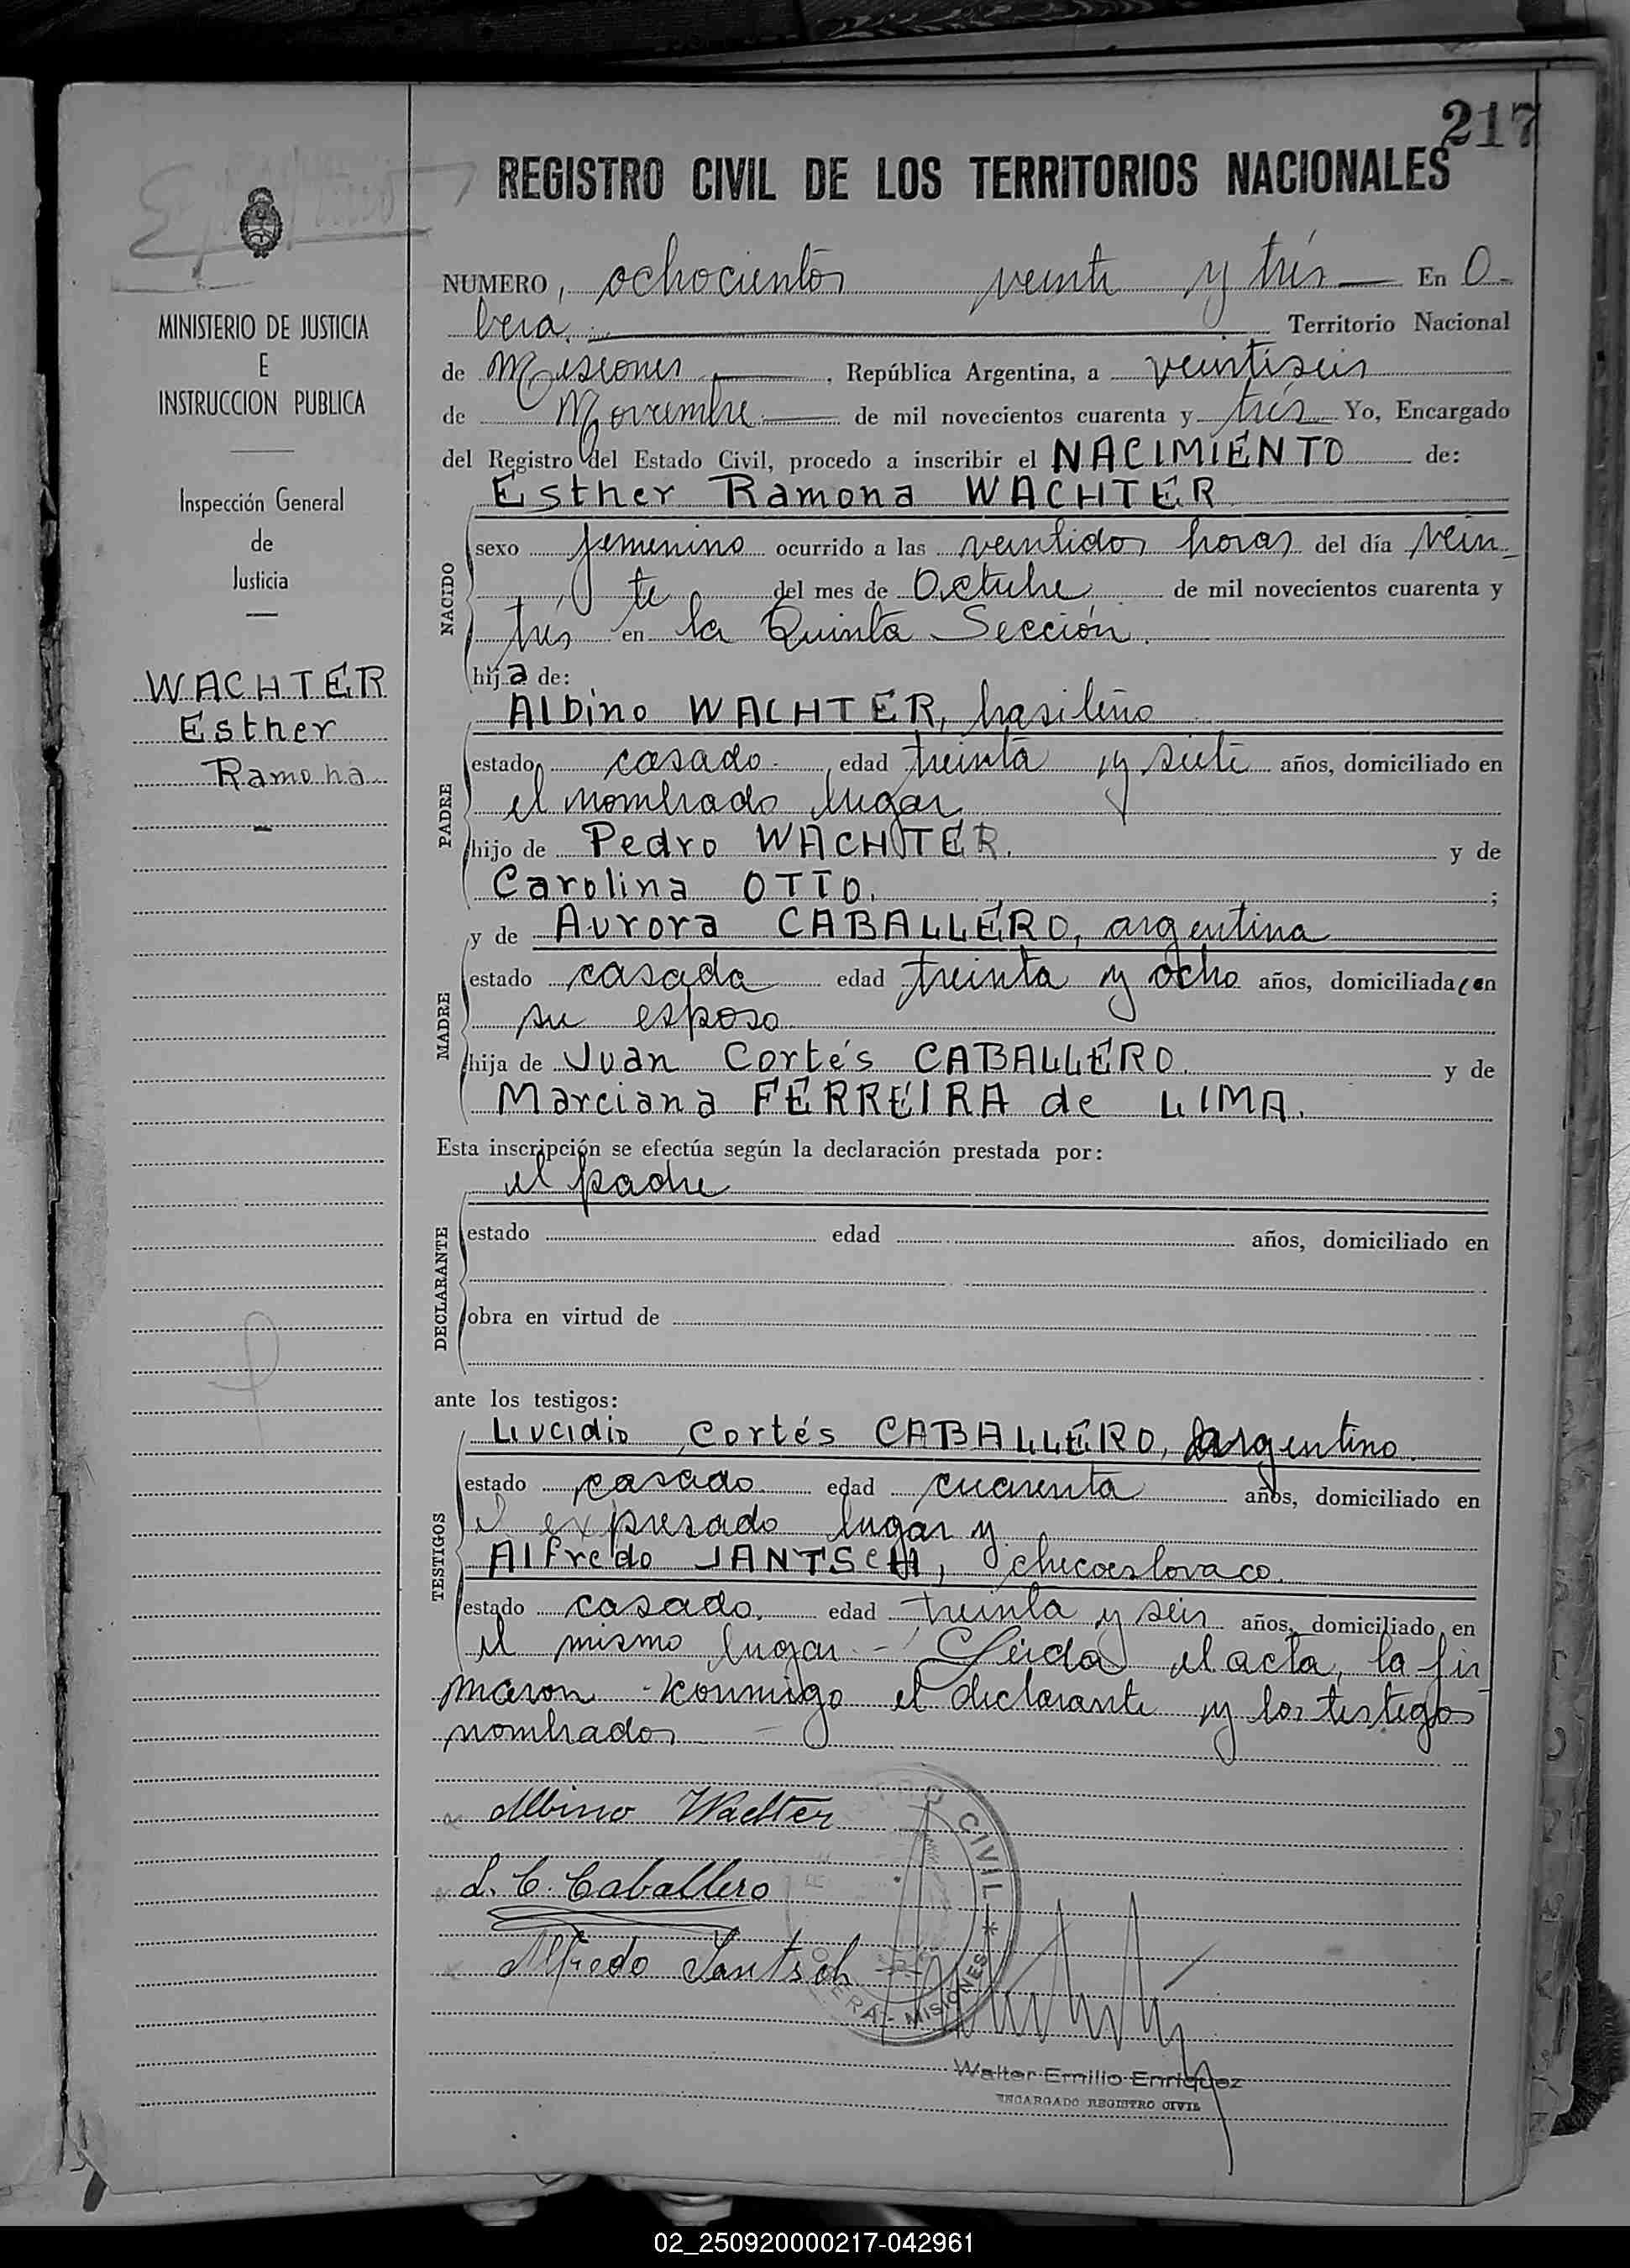 217
REGISTRO CIVIL DE LOS TERRITORIOS NACIONALES
MINISTERIO DE JUSTICIA
E
INSTRUCCION PUBLICA
Inspección General
de
Justicia
WACHTER
Esther
Ramona
NUMERO, ochocientos veinte y trés En O-
bera. Territorio Nacional
de Misiones, República Argentina, a veintiseis
de Noviembre de mil novecientos cuarenta y trés Yo, Encargado
del Registro del Estado Civil, procedo a inscribir el NACIMIENTO de:
Esther Ramona WACHTER
NACIDO
sexo femenino ocurrido a las veintidos horas del día vein-
te del mes de Octubre de mil novecientos cuarenta y
trés en la Quinta Sección.
hija de:
PADRE
Albino WACHTER, brasileño
estado casado. edad treinta y siete años, domiciliado en
el nombrado lugar
hijo de Pedro WACHTER. y de
Carolina OTTO. ;
MADRE
y de Aurora CABALLERO, argentina
estado casada edad treinta y ocho años, domiciliada con
su esposo
hija de Juan Cortés CABALLERO. y de
Marciana FERREIRA de LIMA.
Esta inscripción se efectúa según la declaración prestada por:
DECLARANTE
el padre
estado edad años, domiciliado en
obra en virtud de
ante los testigos:
TESTIGOS
Lucidio Cortés CABALLERO, argentino.
estado casado. edad cuarenta años, domiciliado en
el expresado lugar y
Alfredo JANTSCH, checoeslovaco.
estado casado. edad treinta y seis años, domiciliado en
el mismo lugar.- Leida el acta, la fir
maron conmigo el declarante y los testigos
nombrados
Albino Wachter
L. C. Caballero
Alfredo Jantsch
CIVIL * OBERA - MISIONES
Walter Emilio Enriquez
ENCARGADO REGISTRO CIVIL
02_250920000217-042961